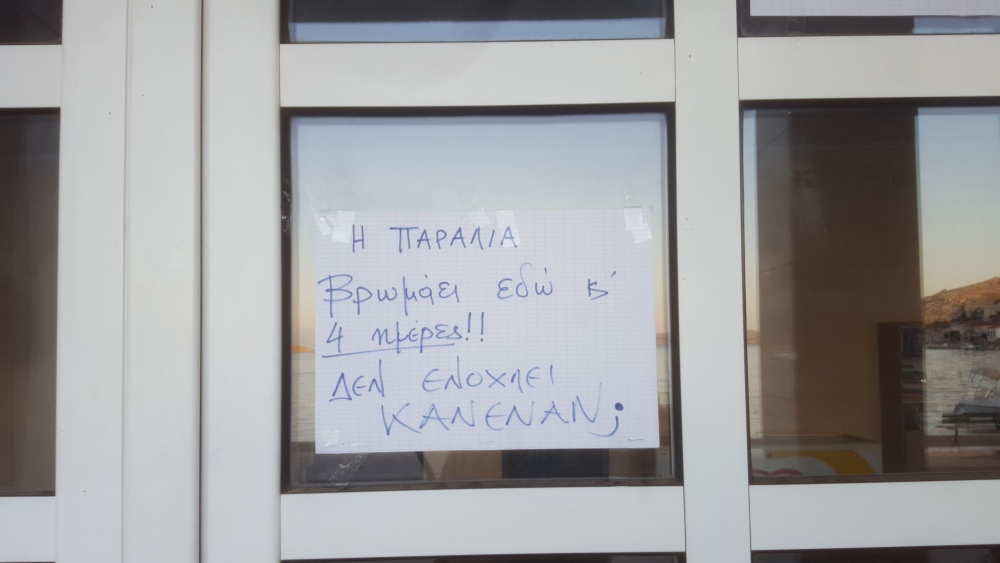 Η ΠΑΡΑΛΙΑ
Βρωμάει εδώ κ´
4 ημέρες!!
ΔΕΝ ΕΝΟΧΛΕΙ
ΚΑΝΕΝΑΝ;